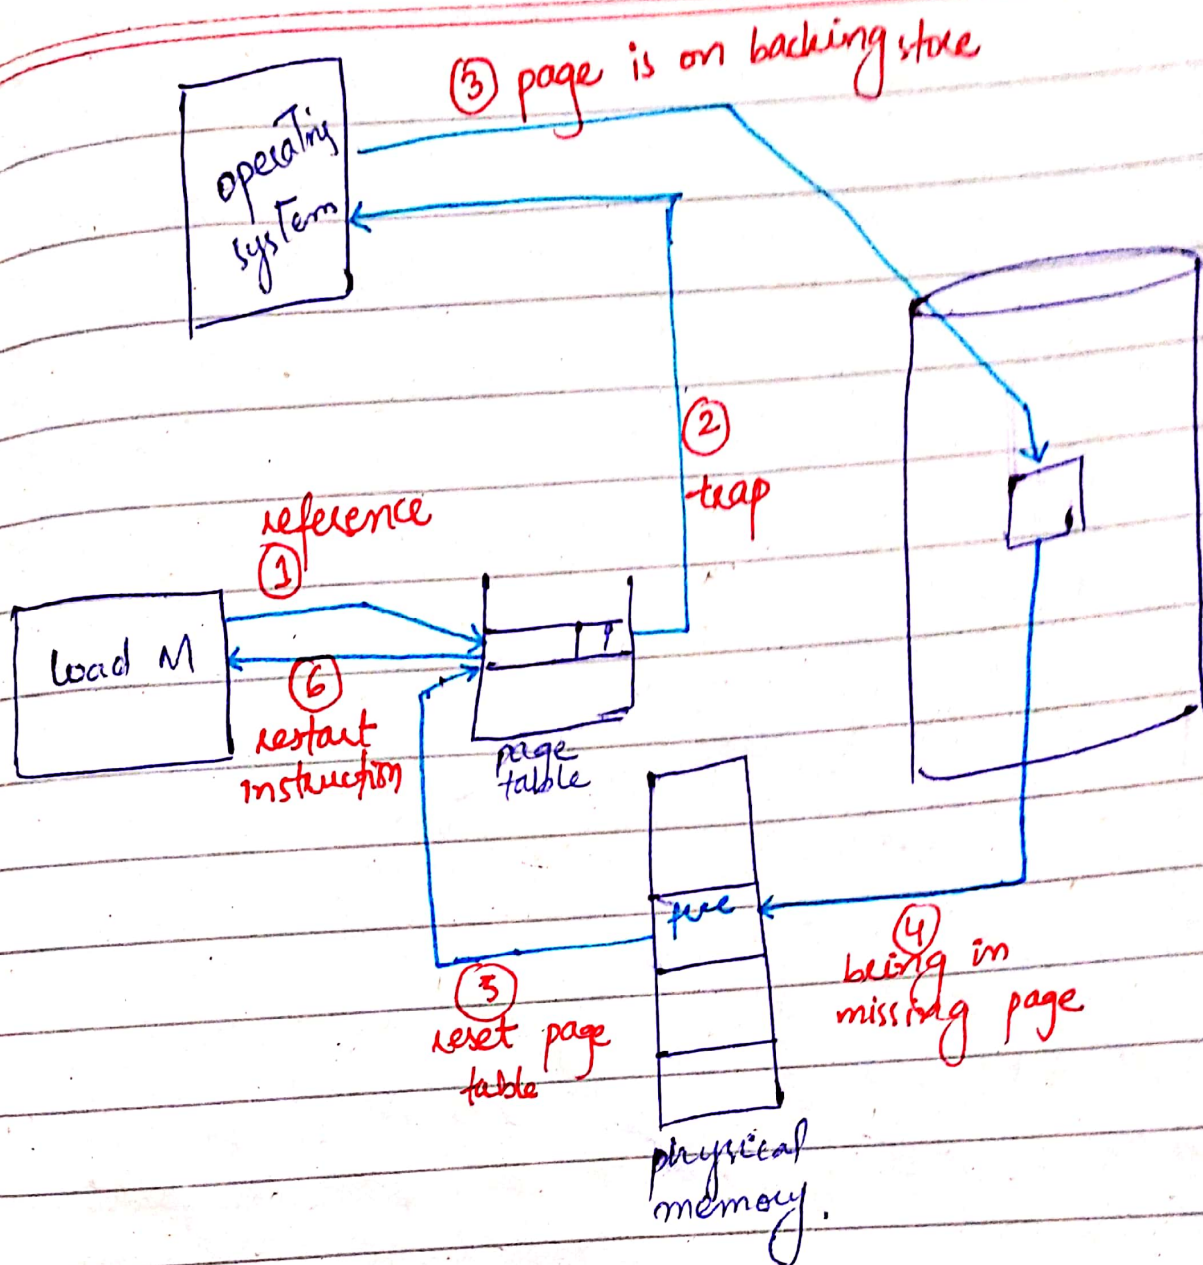 ③ page is on backing store
operating
system
②
trap
reference
①
load M
⑥
restart
instruction
page
table
④
being in
missing page
reset page
table
physical
memory.